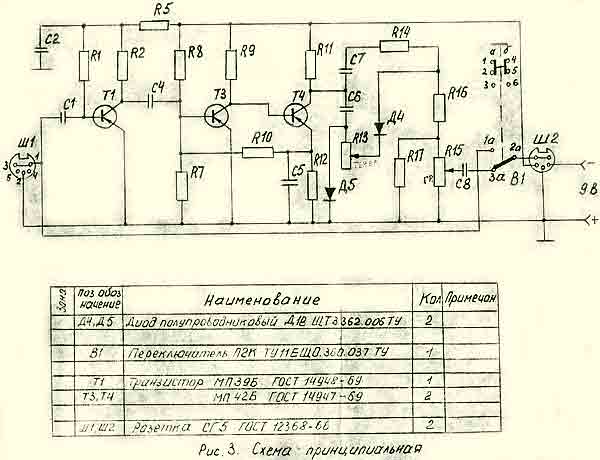 R5
C2
R1
R2
R8
R9
R11
C7
R14
а б
1 4
2 5
3 6
C1
T1
C4
T3
T4
C6
Д4
R16
Ш1
3 1
5 2 4
R10
R13
R7
C5
R12
Д5
R17
R15
ГР.
C8
1а
2а
3а
В1
Ш2
−
9В
+
Зона
Поз обоз
начение
Наименование
Кол
Примечан
Д4,Д5
Диод полупроводниковый Д18 ЩТ3 362.006 ТУ
2
В1
Переключатель П2К ТУ11 ЕЩ0.360.037 ТУ
1
Т1
Транзистор МП39Б ГОСТ 14948-69
1
Т3,Т4
МП 42Б ГОСТ 14947-69
2
Ш1,Ш2
Розетка СГ5 ГОСТ 12368-66
2
Рис. 3. Схема принципиальная